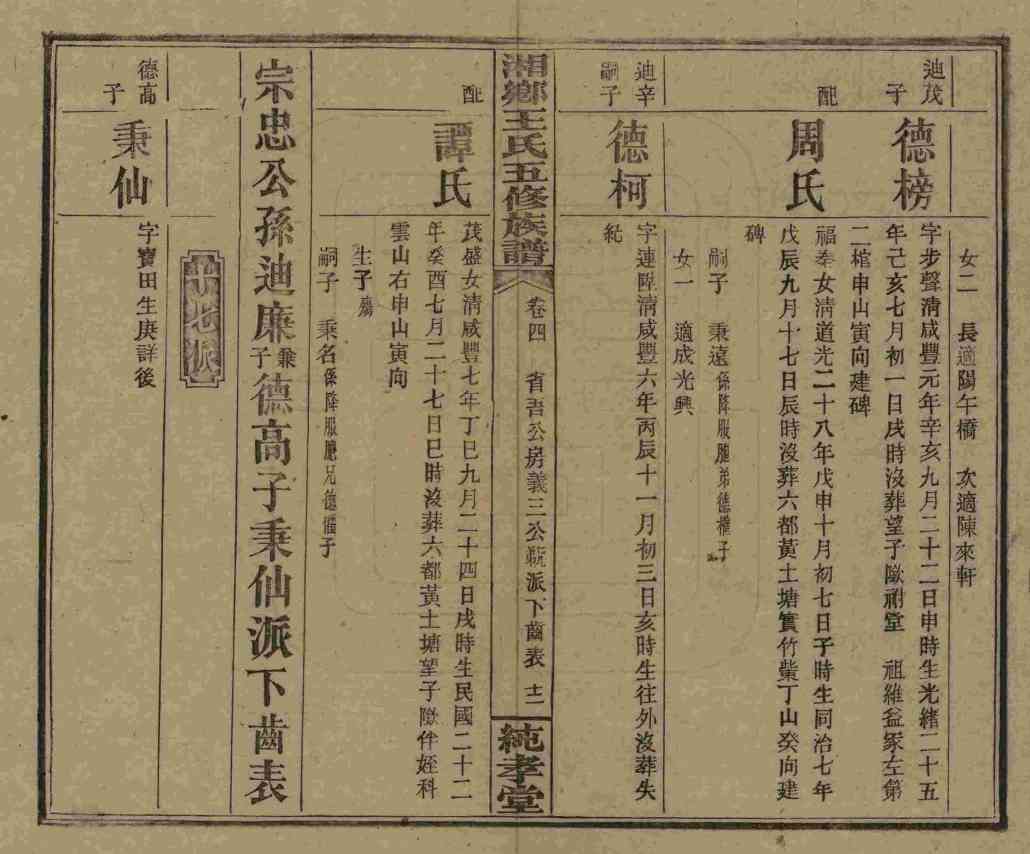 女二　長適陽午橋　次適陳來軒
迪茂子　德榜　字步聲清咸豐元年辛亥九月二十二日申時生光緒二十五
年己亥七月初一日戌時沒葬望子歐祠堂　祖維益冢左第
二棺申山寅向建碑
配　周氏　福奉女清道光二十八年戊申十月初七日子時生同治七年
戊辰九月十七日辰時沒葬六都黃土塘實竹巢丁山癸向建
碑
嗣子　秉遠係降服胞弟德權子
女一　適成光興
迪辛嗣子　德柯　字連陞清咸豐六年丙辰十一月初三日亥時生往外沒葬失
紀
湘鄉王氏五修族譜　卷四　省吾公房義三公派下齒表　十二　純孝堂
配　譚氏　茂盛女清咸豐七年丁巳九月二十四日戌時生民國二十二
年癸酉七月二十七日巳時沒葬六都黃土塘望子歐伴姪科
雲山右申山寅向
生子　殤
嗣子　秉名係降服胞兄德權子
宗忠公孫迪廉兼子德高子秉仙派下齒表
德高子　秉仙　字寶田生庚詳後